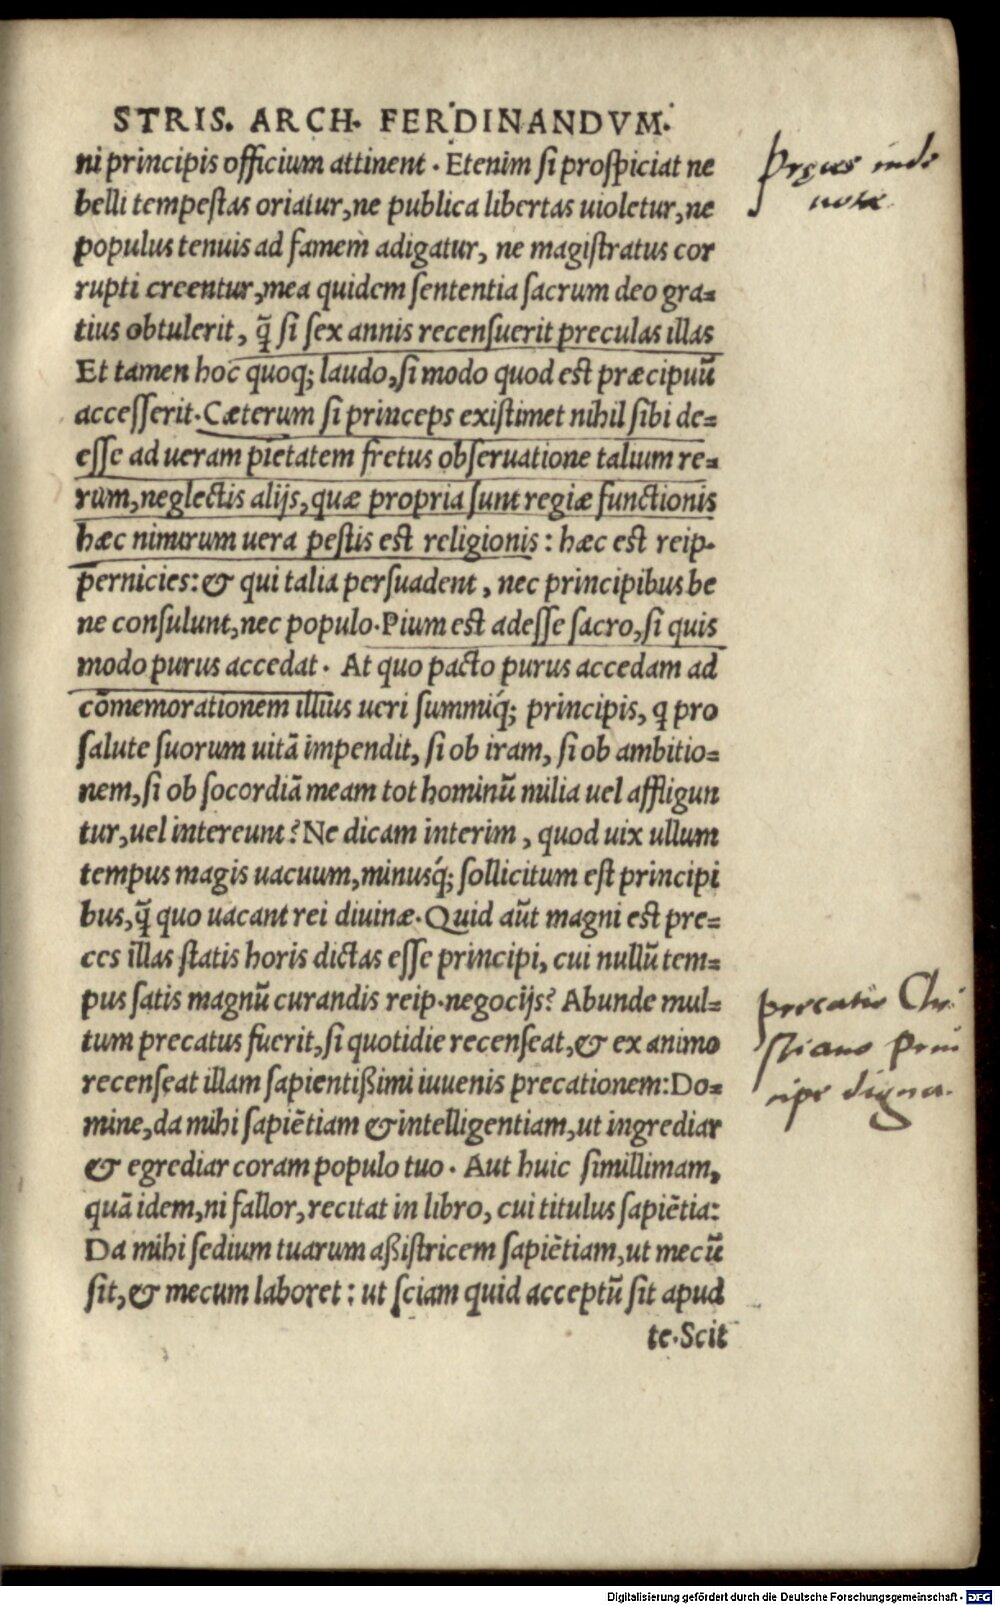 STRIS. ARCH. FERDINANDVM.
ni principis officium attinent. Etenim ſi proſpiciat ne
belli tempeſtas oriatur, ne publica libertas uioletur, ne
populus tenuis ad famem adigatur, ne magiſtratus cor
rupti creentur, mea quidem ſententia ſacrum deo gra⸗
tius obtulerit, q̃ ſi ſex annis recenſuerit preculas illas
Et tamen hoc quoq; laudo, ſi modo quod eſt præcipuũ
acceſſerit. Cæterum ſi princeps exiſtimet nihil ſibi de⸗
eſſe ad ueram pietatem fretus obſeruatione talium re⸗
rum, neglectis alijs, quæ propria ſunt regiæ functionis
hæc nimirum uera peſtis eſt religionis: hæc eſt reip.
pernicies: & qui talia perſuadent, nec principibus be
ne conſulunt, nec populo. Pium eſt adeſſe ſacro, ſi quis
modo purus accedat. At quo pacto purus accedam ad
cõmemorationem illius ueri ſummíq́; principis, q pro
ſalute ſuorum uitã impendit, ſi ob iram, ſi ob ambitio⸗
nem, ſi ob ſocordiã meam tot hominũ milia uel affligun
tur, uel intereunt? Ne dicam interim, quod uix ullum
tempus magis uacuum, minusq́; ſollicitum eſt principi
bus, q̃ quo uacant rei diuinæ. Quid aũt magni eſt pre⸗
ces illas ſtatis horis dictas eſſe principi, cui nullũ tem⸗
pus ſatis magnũ curandis reip. negocijs? Abunde mul⸗
tum precatus fuerit, ſi quotidie recenſeat, & ex animo
recenſeat illam ſapientißimi iuuenis precationem: Do⸗
mine, da mihi ſapiẽtiam & intelligentiam, ut ingrediar
& egrediar coram populo tuo. Aut huic ſimillimam,
quã idem, ni fallor, recitat in libro, cui titulus ſapiẽtia:
Da mihi ſedium tuarum aßiſtricem ſapiẽtiam, ut mecũ
ſit, & mecum laboret: ut ſciam quid acceptũ ſit apud
te. Scit
precatio Chri
ſtiano Prin
cipe digna.
Digitalisierung gefördert durch die Deutsche Forschungsgemeinschaft - DFG